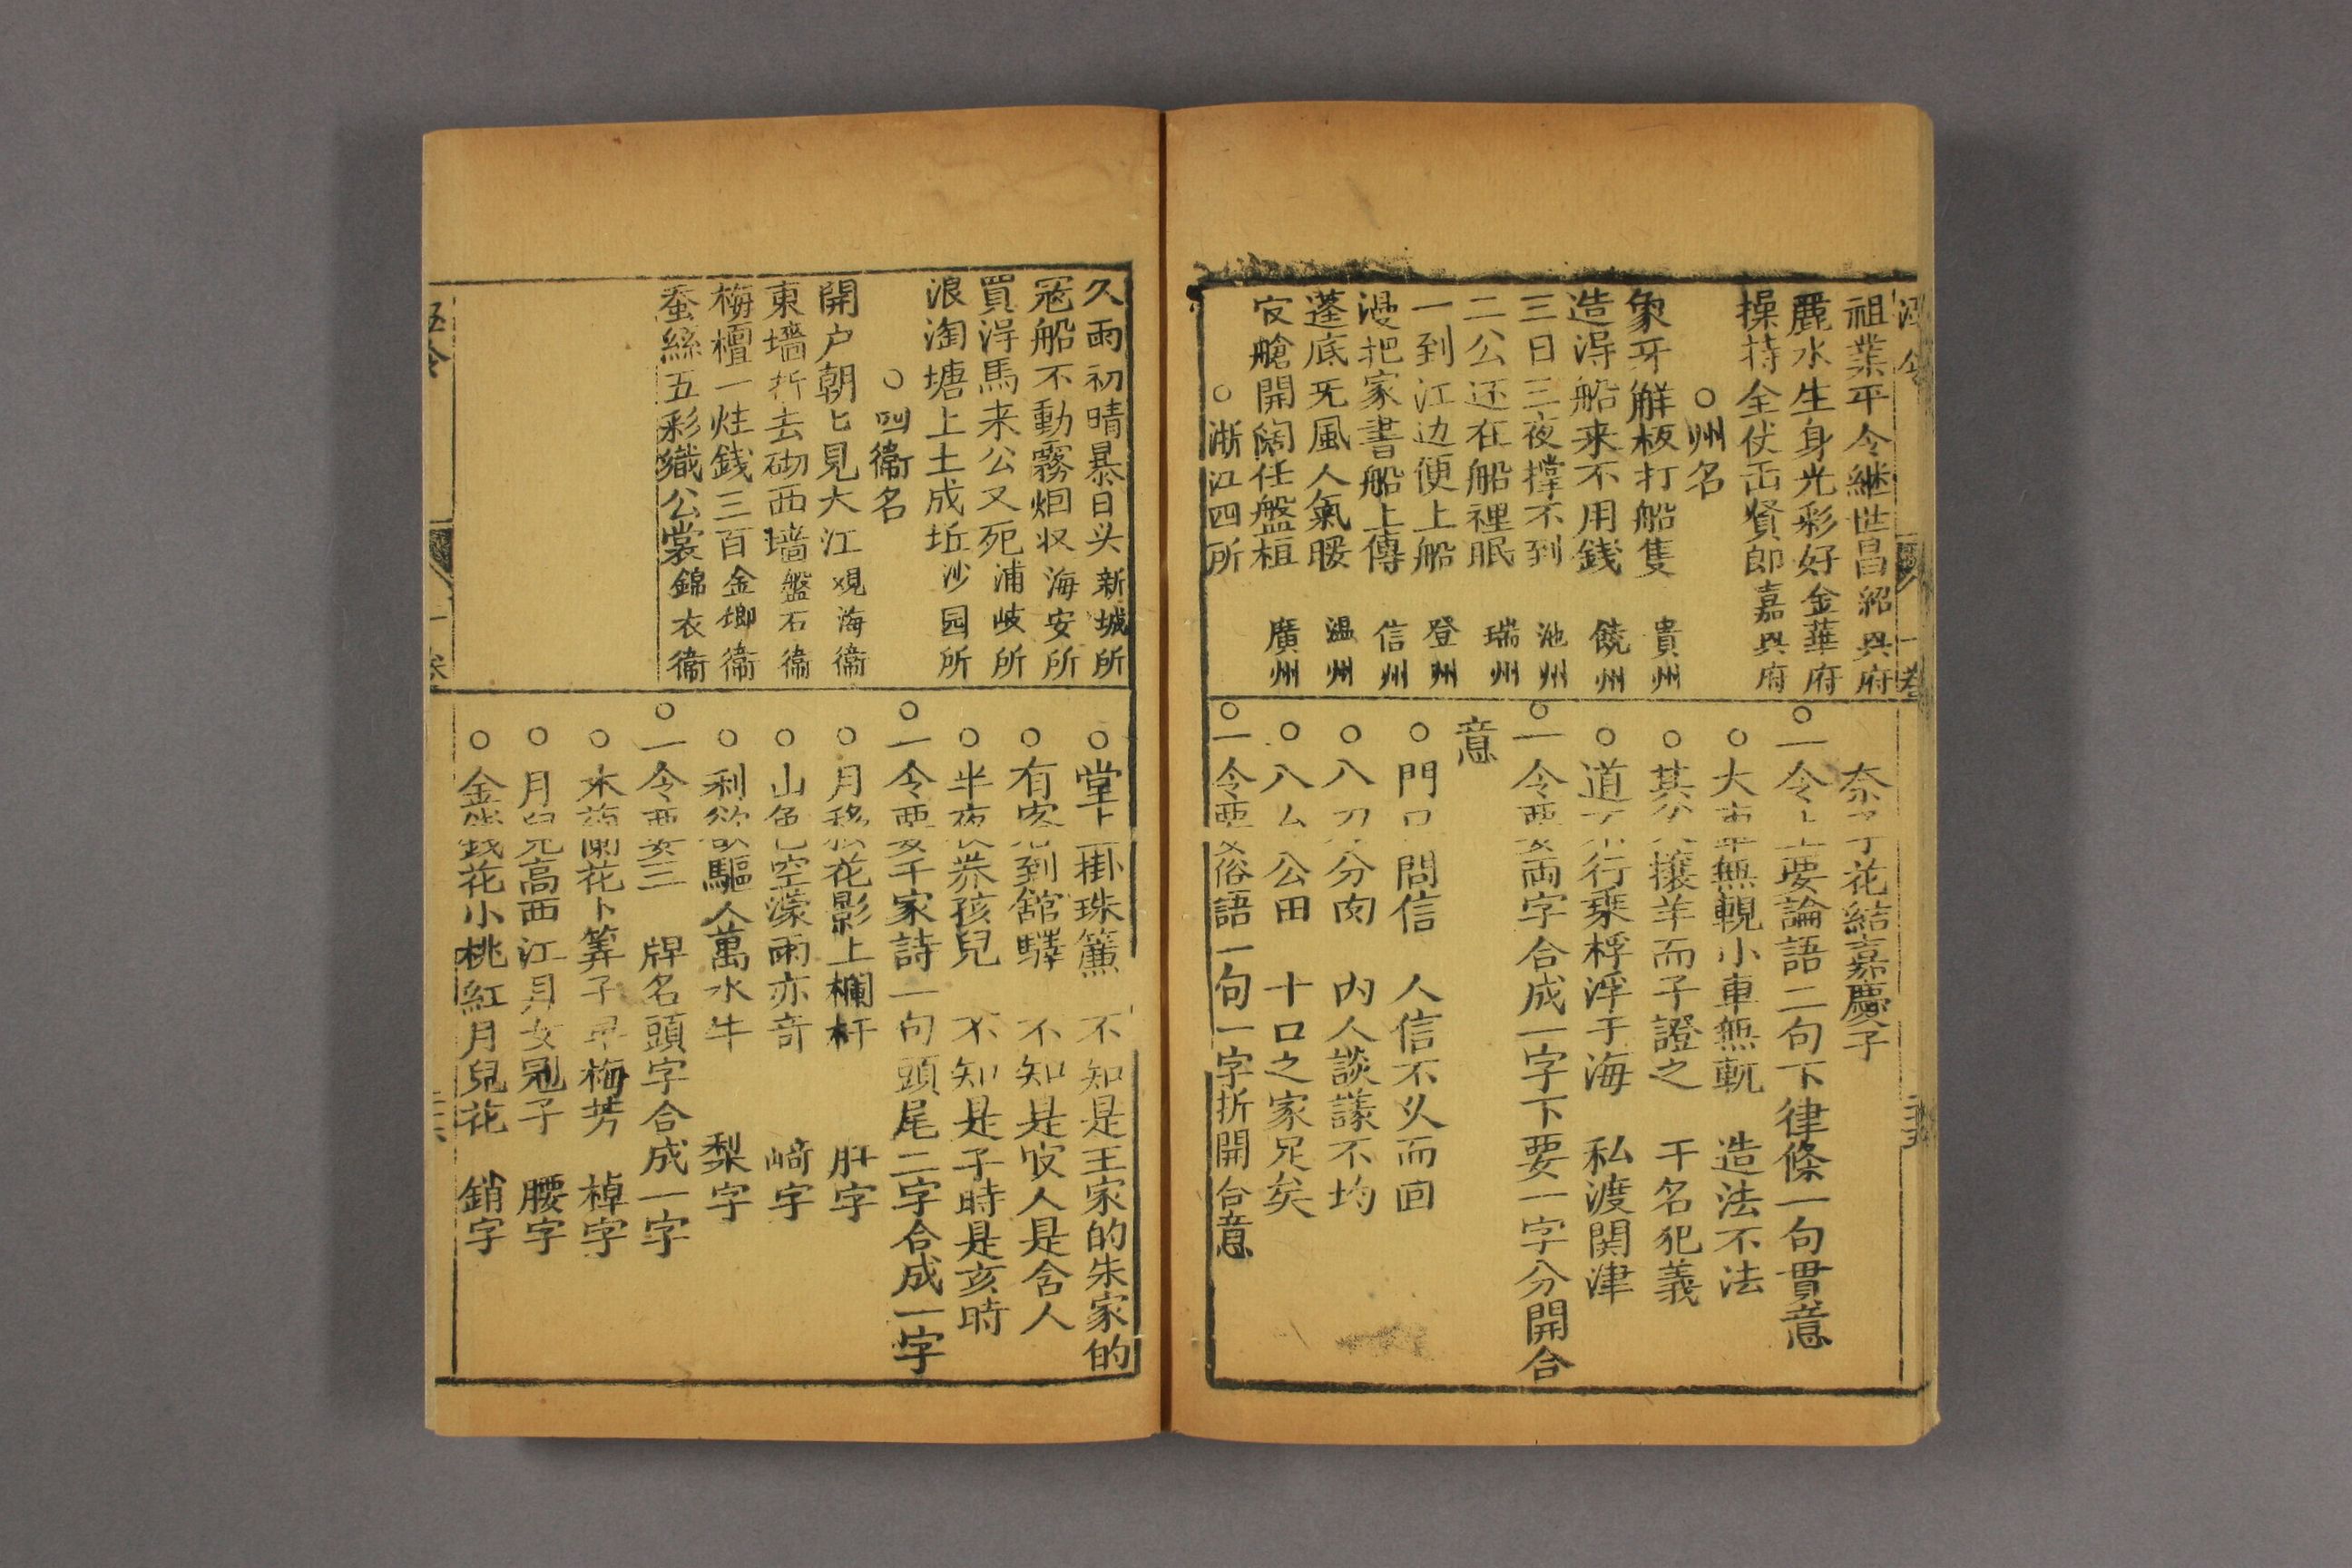 酒令 一卷
祖業平令継世昌 紹興府
麗水生身光彩好 金華府
操持全仗岳賢郎 嘉興府
○州名
象牙觧板打船隻 貴州
造得船来不用銭 饒州
三日三夜撑不到 池州
二公还在船裡眠 瑞州
一到江边便上船 登州
漫把家書船上傳 信州
蓬底无風人氣暖 温州
官艙開闊任盤桓 廣州
○浙江四所
奈子花結嘉慶子
○一令上要論語二句下律條一句貫意
○大車無輗小車無軏 造法不法
○其父攘羊而子證之 干名犯義
○道不行乗桴浮于海 私渡関津
○一令要両字合成一字下要一字分開合
意
○門口問信 人信不久而回
○八刀分肉 内人談議不均
○八厶公田 十口之家足矣
○一令要俗語一句一字折開合意
久雨初晴暴日头 新城所
冦船不動霧烟収 海安所
買得馬来公又死 浦岐所
浪淘塘上土成坵 沙园所
○四衞名
開户朝匕見大江 观海衞
東墻折去砌西墻 盤石衞
梅檀一炷銭三百 金鄉衞
蚕絲五彩織公裳 錦衣衞
○堂上掛珠簾 不知是王家的朱家的
○有客到舘驛 不知是官人是舍人
○半夜养孩兒 不知是子時是亥時
○一令要千家詩一句頭尾二字合成一字
○月移花影上欄杆 肝字
○山色空濛雨亦竒 崎字
○利欲驅人萬水牛 犁字
○一令要三牌名頭字合成一字
○木蘭花卜算子早梅芳 棹字
○月兒高西江月女冠子 腰字
○金銭花小桃紅月兒花 銷字